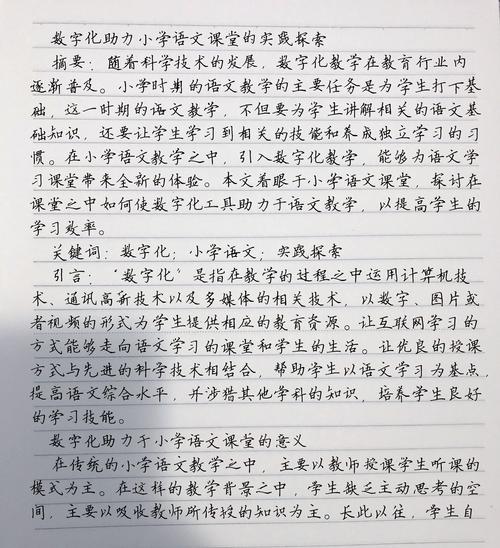 数字化助力小学语文课堂的实践探索
摘要：随着科学技术的发展，数字化教学在教育行业内
逐渐普及。小学时期的语文教学的主要任务是为学生打下基
础，这一时期的语文教学，不但要为学生讲解相关的语文基
础知识，还要让学生学习到相关的技能和养成独立学习的习
惯。在小学语文教学之中，引入数字化教学，能够为语文学
习课堂带来全新的体验。本文着眼于小学语文课堂，探讨在
课堂之中如何使数字化工具助力于语文教学，以提高学生的
学习效率。
关键词：数字化；小学语文；实践探索
引言：“数字化”是指在教学的过程之中运用计算机技
术、通讯高新技术以及多媒体的相关技术，以数字、图片或
者视频的形式为学生提供相应的教育资源。让互联网学习的
方式能够走向语文学习的课堂和学生的生活。让优良的授课
方式与先进的科学技术相结合，帮助学生以语文学习为基点，
提高语文综合水平，并涉猎其他学科的知识，培养学生良好
的学习技能。
数字化助力于小学语文课堂的意义
在传统的小学语文教学之中，主要以教师授课学生听课的
模式为主。在这样的教学背景之中，学生缺乏主动思考的空
间，主要以吸收教师所传授的知识为主。长此以往，学生自